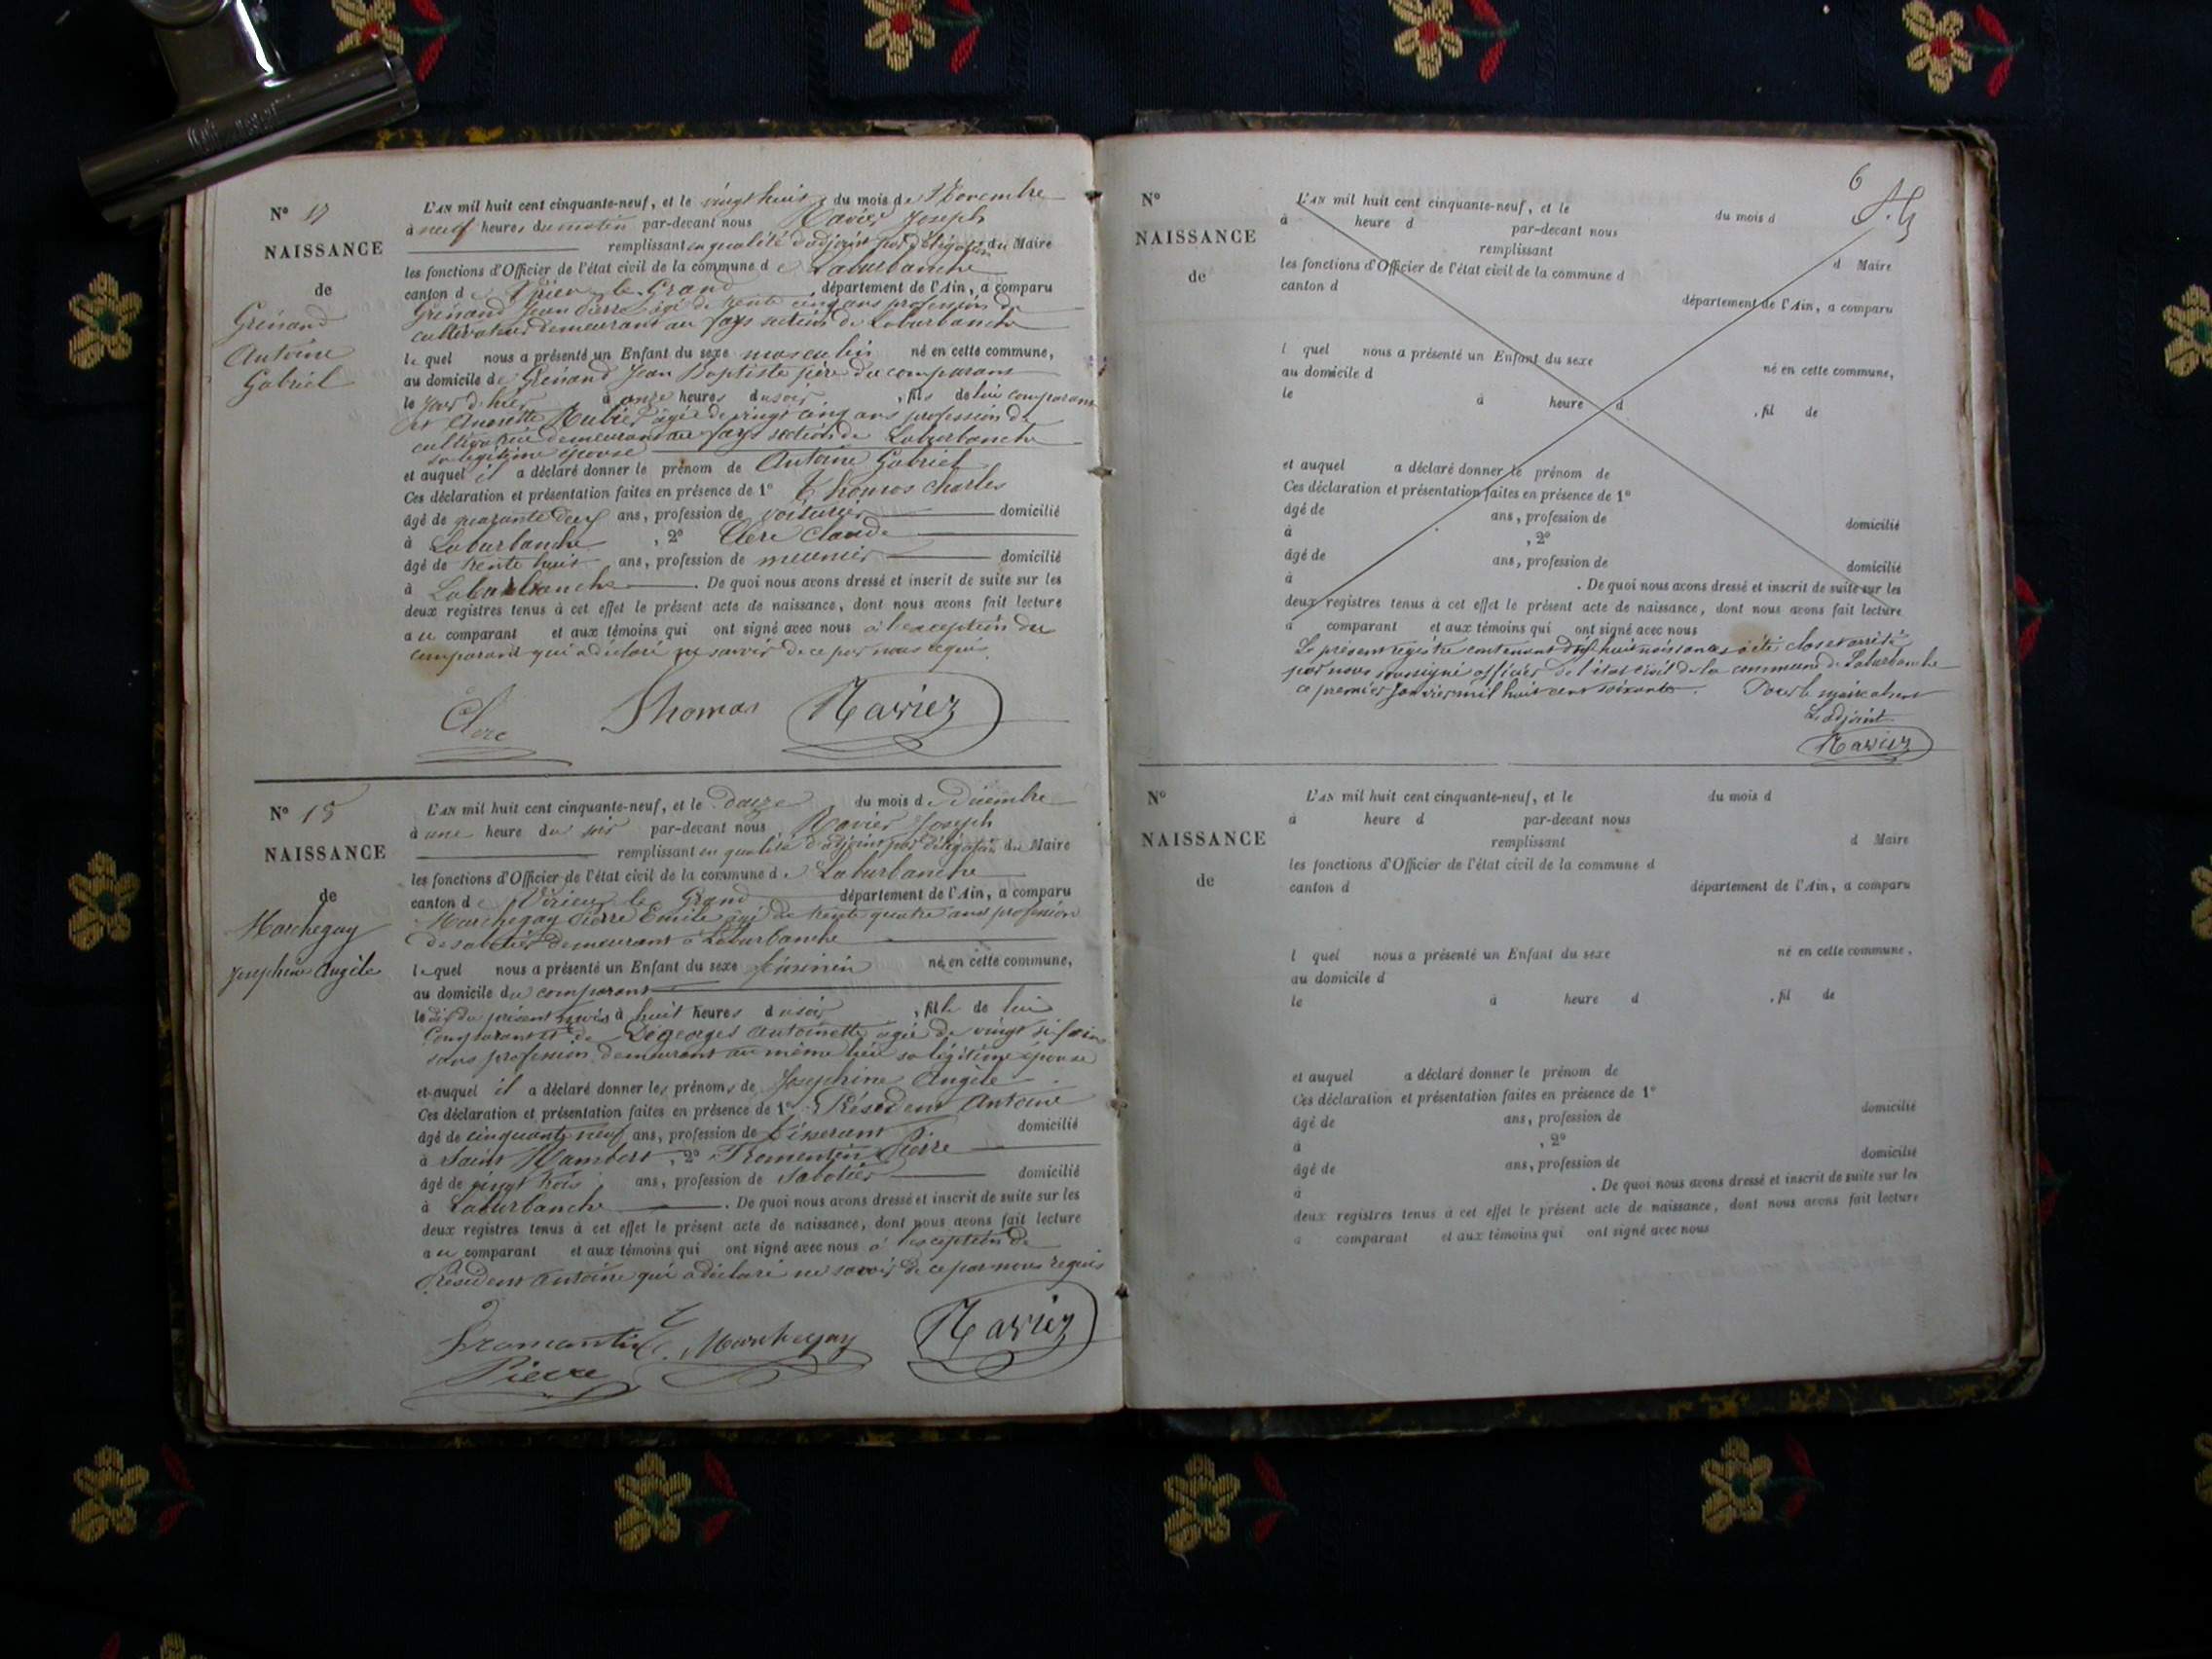 N° 17
NAISSANCE
de
Grinand
Antoine
Gabriel
L'AN mil huit cent cinquante-neuf, et le vingt huit du mois de Novembre
à neuf heures du matin par-devant nous Ravier Joseph
remplissant en qualité d'adjoint par délégation du Maire
les fonctions d'Officier de l'état civil de la commune de Laburbanche
canton de Virieu le Grand département de l'Ain, a comparu
Grinand Jean Pierre âgé de trente cinq ans profession de
cultivateur demeurant au fays section de Laburbanche
lequel nous a présenté un Enfant du sexe masculin né en cette commune,
au domicile de Grinand Jean Baptiste père du comparant
le jour d'hier à onze heures du soir, fils de lui comparant
et Annette Hubier âgée de vingt cinq ans profession de
cultivatrice demeurant au fays section de Laburbanche
sa légitime épouse
et auquel il a déclaré donner le prénom de Antoine Gabriel
Ces déclaration et présentation faites en présence de 1° Thomas Charles
âgé de quarante deux ans, profession de voiturier domicilié
à Laburbanche, 2° Clerc Claude
âgé de trente huit ans, profession de meunier domicilié
à Laburbanche. De quoi nous avons dressé et inscrit de suite sur les
deux registres tenus à cet effet le présent acte de naissance, dont nous avons fait lecture
au comparant et aux témoins qui ont signé avec nous à l'exception du
comparant qui a déclaré ne savoir de ce par nous requis
Clerc Thomas Ravier
N° 18
NAISSANCE
de
Marchegay
Josephine Angèle
L'AN mil huit cent cinquante-neuf, et le douze du mois de Décembre
à une heure du soir par-devant nous Ravier Joseph
remplissant en qualité d'adjoint par délégation du Maire
les fonctions d'Officier de l'état civil de la commune de Laburbanche
canton de Virieu le Grand département de l'Ain, a comparu
Marchegay Pierre Emile âgé de trente quatre ans profession
de sabotier demeurant à Laburbanche
lequel nous a présenté un Enfant du sexe féminin né en cette commune,
au domicile du comparant
le dix du présent mois à huit heures du soir, fille de lui
Comparant et de Degeorges Antoinette âgée de vingt six ans
sans profession demeurant au même lieu sa légitime épouse
et auquel il a déclaré donner les prénoms de Josephine Angèle
Ces déclaration et présentation faites en présence de 1° Résident Antoine
âgé de cinquante neuf ans, profession de tisserant domicilié
à Saint Rambert, 2° Fromentin Pierre
âgé de vingt trois ans, profession de sabotier domicilié
à Laburbanche. De quoi nous avons dressé et inscrit de suite sur les
deux registres tenus à cet effet le présent acte de naissance, dont nous avons fait lecture
au comparant et aux témoins qui ont signé avec nous à l'exception de
Résident Antoine qui a déclaré ne savoir de ce par nous requis
Fromantin Marchegay Ravier
Pierre
6
N°
NAISSANCE
de
L'AN mil huit cent cinquante-neuf, et le du mois d
à heure d par-devant nous
remplissant d Maire
les fonctions d'Officier de l'état civil de la commune d
canton d département de l'Ain, a comparu
l quel nous a présenté un Enfant du sexe né en cette commune,
au domicile d
le à heure d , fil de
et auquel a déclaré donner le prénom de
Ces déclaration et présentation faites en présence de 1°
âgé de ans, profession de domicilié
à , 2°
âgé de ans, profession de domicilié
à . De quoi nous avons dressé et inscrit de suite sur les
deux registres tenus à cet effet le présent acte de naissance, dont nous avons fait lecture
a comparant et aux témoins qui ont signé avec nous
Le présent registre contenant dix huit naissances a été clos et arrêté
par nous soussigné officier de l'état civil de la commune de Laburbanche
ce premier Janvier mil huit cent soixante. Pour le maire absent
L'adjoint
Ravier
N°
NAISSANCE
de
L'AN mil huit cent cinquante-neuf, et le du mois d
à heure d par-devant nous
remplissant d Maire
les fonctions d'Officier de l'état civil de la commune d
canton d département de l'Ain, a comparu
l quel nous a présenté un Enfant du sexe né en cette commune,
au domicile d
le à heure d , fil de
et auquel a déclaré donner le prénom de
Ces déclaration et présentation faites en présence de 1°
âgé de ans, profession de domicilié
à , 2°
âgé de ans, profession de domicilié
à . De quoi nous avons dressé et inscrit de suite sur les
deux registres tenus à cet effet le présent acte de naissance, dont nous avons fait lecture
a comparant et aux témoins qui ont signé avec nous